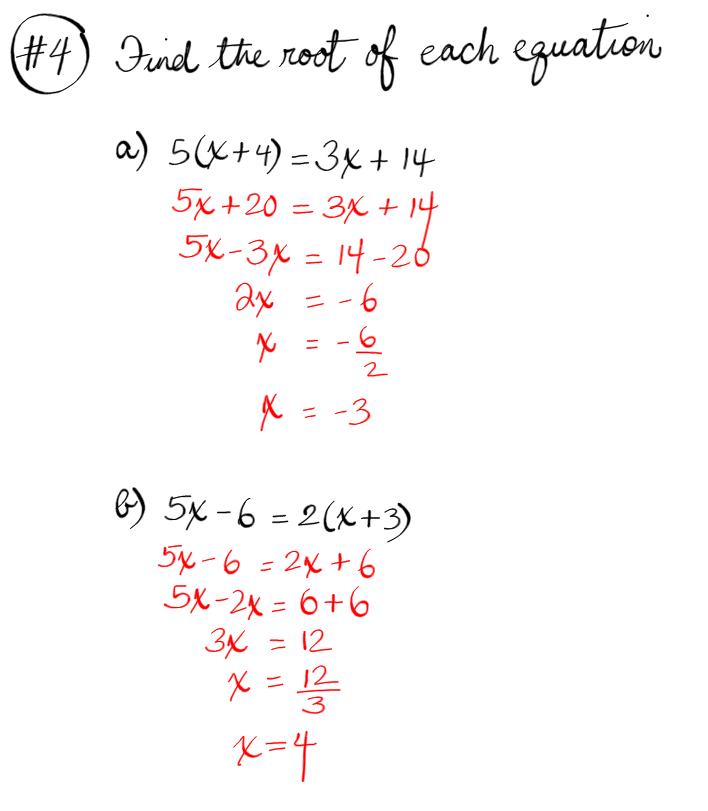 #4 Find the root of each equation
a) 5(x+4) = 3x + 14
5x + 20 = 3x + 14
5x - 3x = 14 - 20
2x = -6
x = -6/2
x = -3
b) 5x - 6 = 2(x+3)
5x - 6 = 2x + 6
5x - 2x = 6 + 6
3x = 12
x = 12/3
x = 4